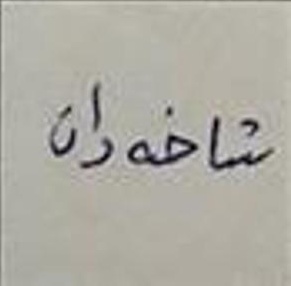 شاخه دان